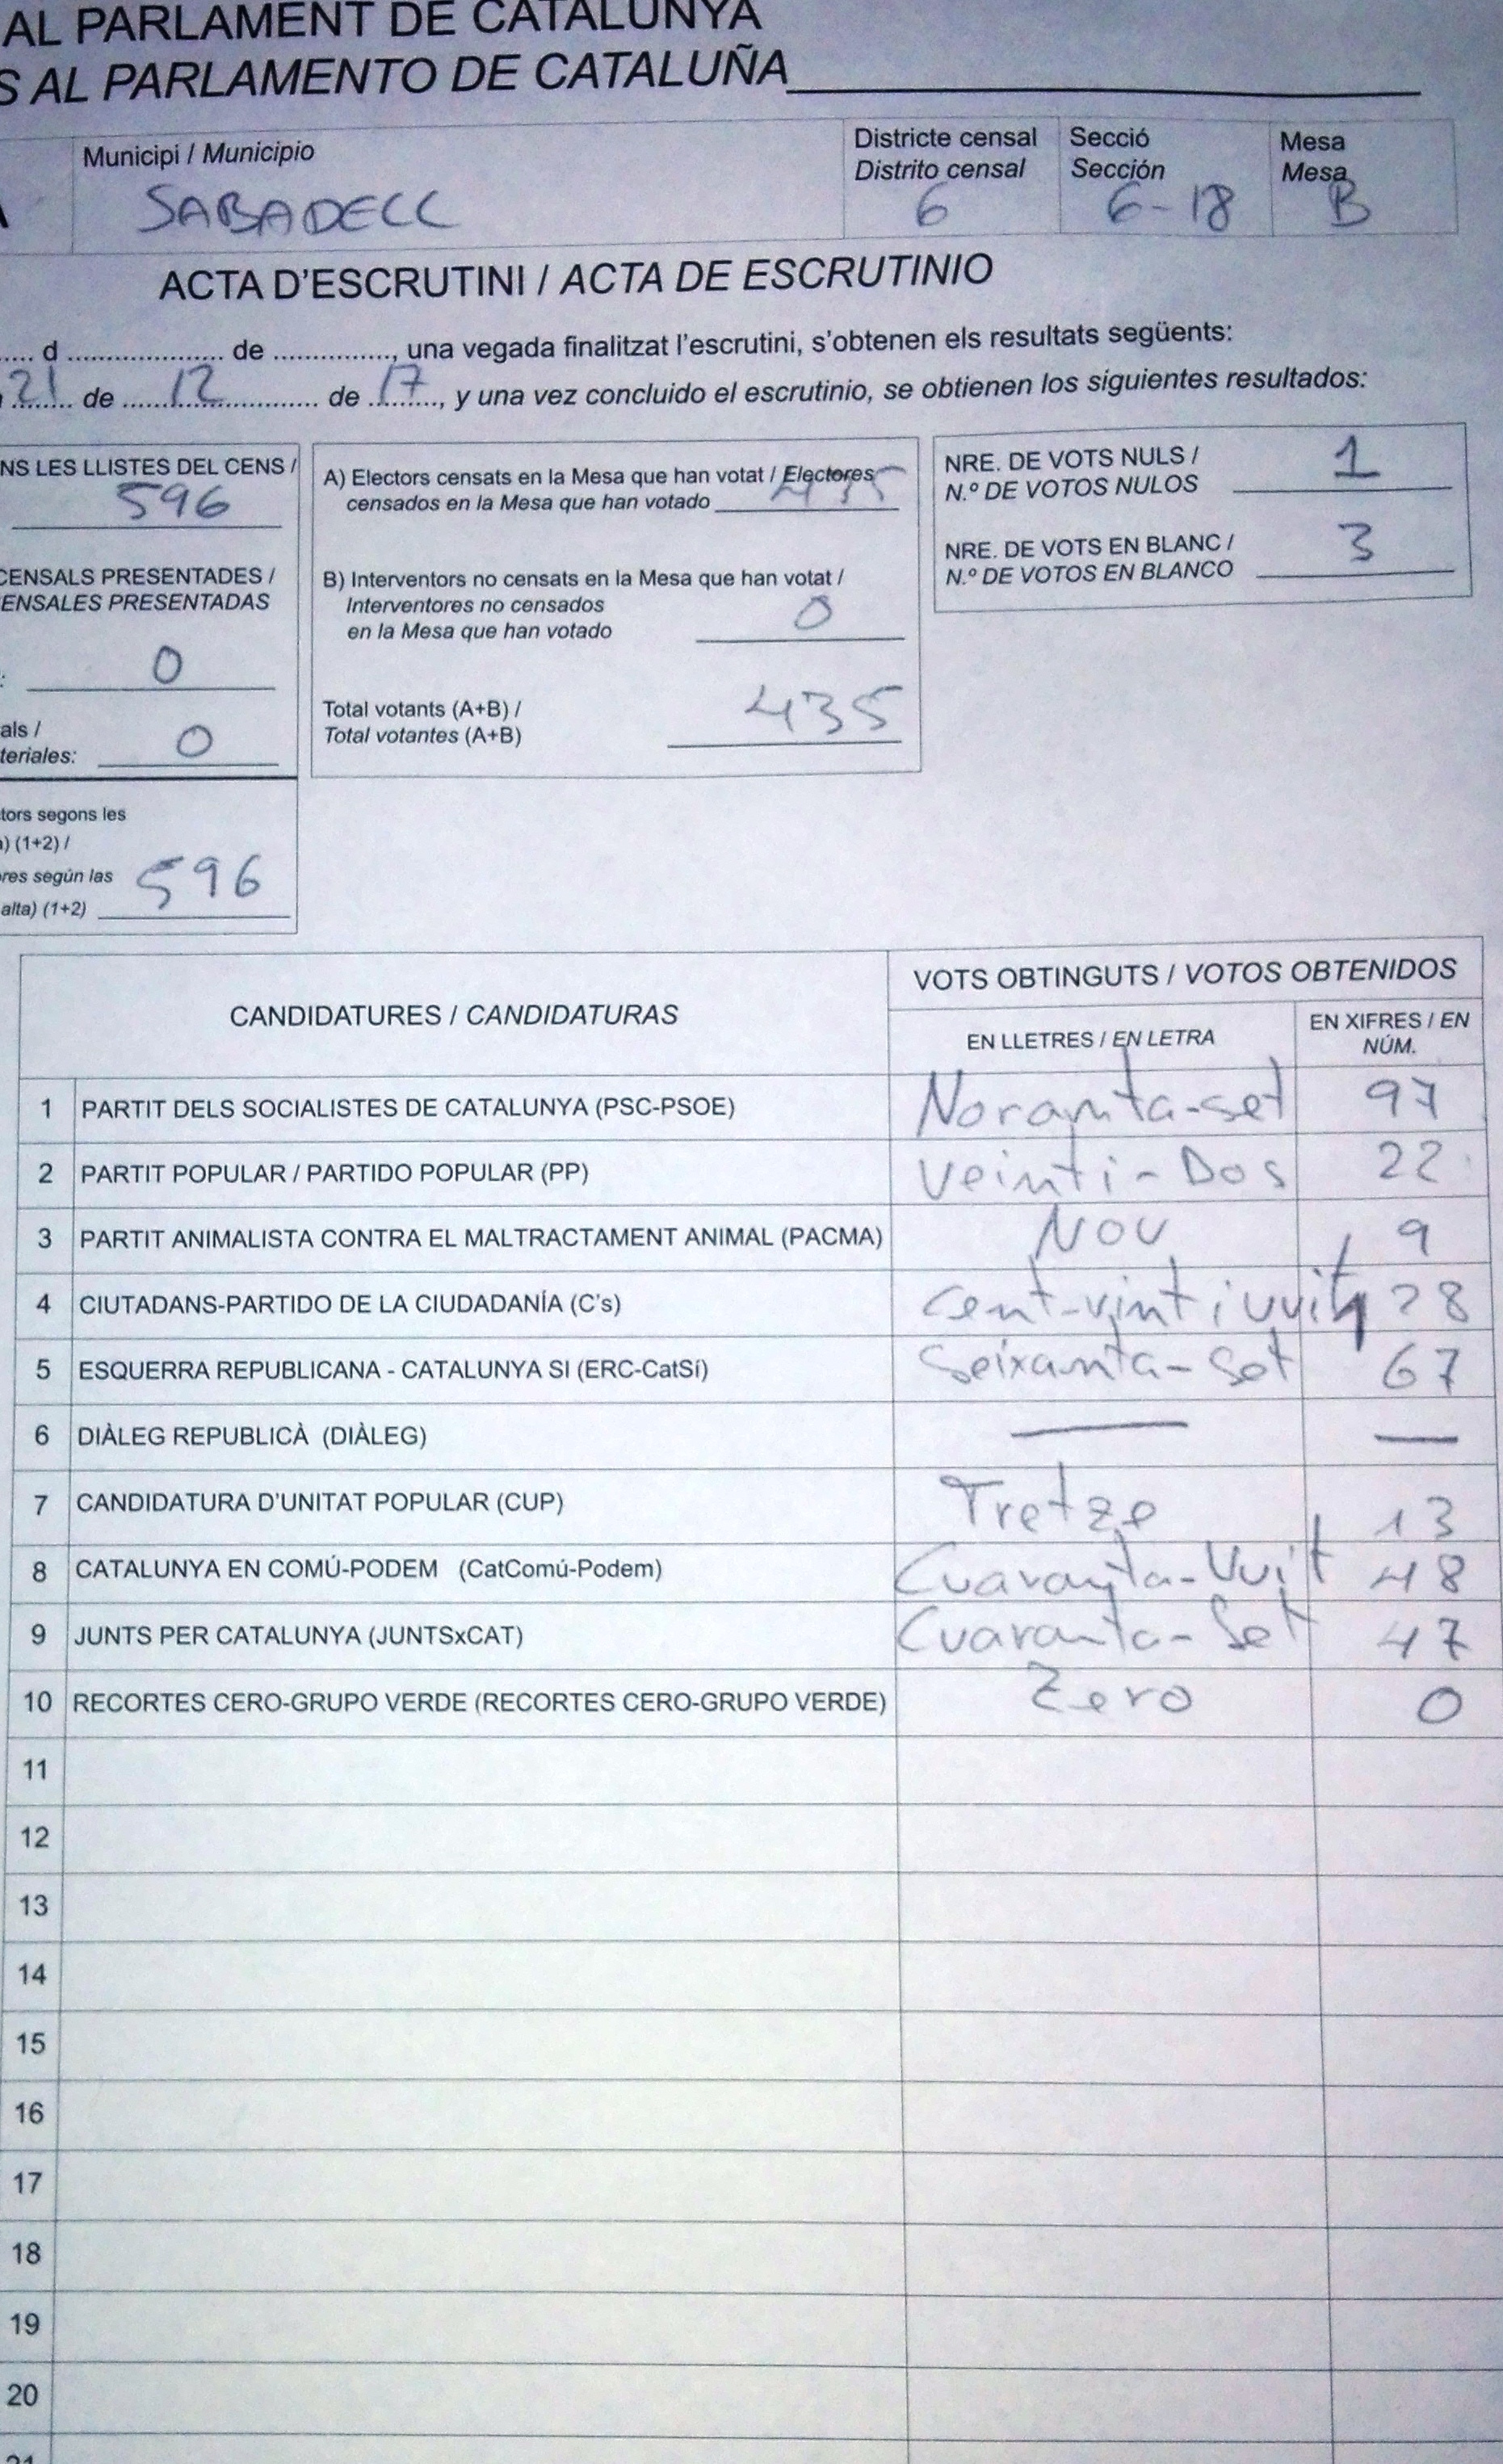 AL PARLAMENT DE CATALUNYA
S AL PARLAMENTO DE CATALUÑA
Municipi / Municipio
SABADELL
Districte censal
Distrito censal
6
Secció
Sección
6-18
Mesa
Mesa
B
ACTA D'ESCRUTINI / ACTA DE ESCRUTINIO
..... d ...................... de ................, una vegada finalitzat l'escrutini, s'obtenen els resultats següents:
21 de 12 de 17, y una vez concluido el escrutinio, se obtienen los siguientes resultados:
NS LES LLISTES DEL CENS /
596
CENSALS PRESENTADES /
ENSALES PRESENTADAS
: 0
als /
teriales: 0
tors segons les
) (1+2) /
res según las
alta) (1+2) 596
A) Electors censats en la Mesa que han votat / Electores
censados en la Mesa que han votado 435
B) Interventors no censats en la Mesa que han votat /
Interventores no censados
en la Mesa que han votado 0
Total votants (A+B) /
Total votantes (A+B) 435
NRE. DE VOTS NULS /
N.º DE VOTOS NULOS 1
NRE. DE VOTS EN BLANC /
N.º DE VOTOS EN BLANCO 3
CANDIDATURES / CANDIDATURAS
VOTS OBTINGUTS / VOTOS OBTENIDOS
EN LLETRES / EN LETRA
EN XIFRES / EN
NÚM.
1 PARTIT DELS SOCIALISTES DE CATALUNYA (PSC-PSOE) Noranta-set 97
2 PARTIT POPULAR / PARTIDO POPULAR (PP) Veinti-Dos 22
3 PARTIT ANIMALISTA CONTRA EL MALTRACTAMENT ANIMAL (PACMA) NOU 9
4 CIUTADANS-PARTIDO DE LA CIUDADANÍA (C's) Cent-vint i vuit 128
5 ESQUERRA REPUBLICANA - CATALUNYA SI (ERC-CatSí) Seixanta-Set 67
6 DIÀLEG REPUBLICÀ (DIÀLEG) — —
7 CANDIDATURA D'UNITAT POPULAR (CUP) Tretze 13
8 CATALUNYA EN COMÚ-PODEM (CatComú-Podem) Cuaranta-Vuit 48
9 JUNTS PER CATALUNYA (JUNTSxCAT) Cuaranta-Set 47
10 RECORTES CERO-GRUPO VERDE (RECORTES CERO-GRUPO VERDE) Zero 0
11
12
13
14
15
16
17
18
19
20
21